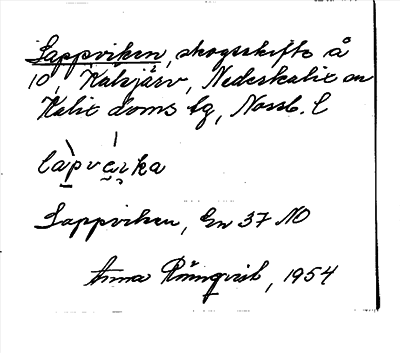 Lappviken, skogsskifte å
10, Kalsjärv, Nederkalix sn
Kalix doms. lg, Norrb. l
làpvá̱ṛka
Lappviken, En 37 NO
Anna Rönnqvist, 1954